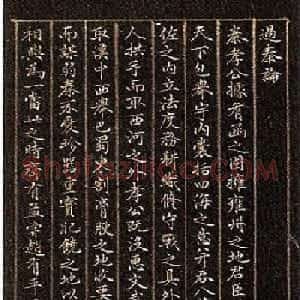 過秦論
秦孝公據肴函之固擁雍州之地君臣
天下包舉宇內囊括四海之意并吞八
佐之內立法度務耕織修守戰之具外
人拱手而取西河之外孝公既沒惠文武
取漢中西舉巴蜀東割膏腴之地收要
而謀弱秦不愛珍器重寶肥饒之地以
相與為一當此之時齊有孟嘗趙有平